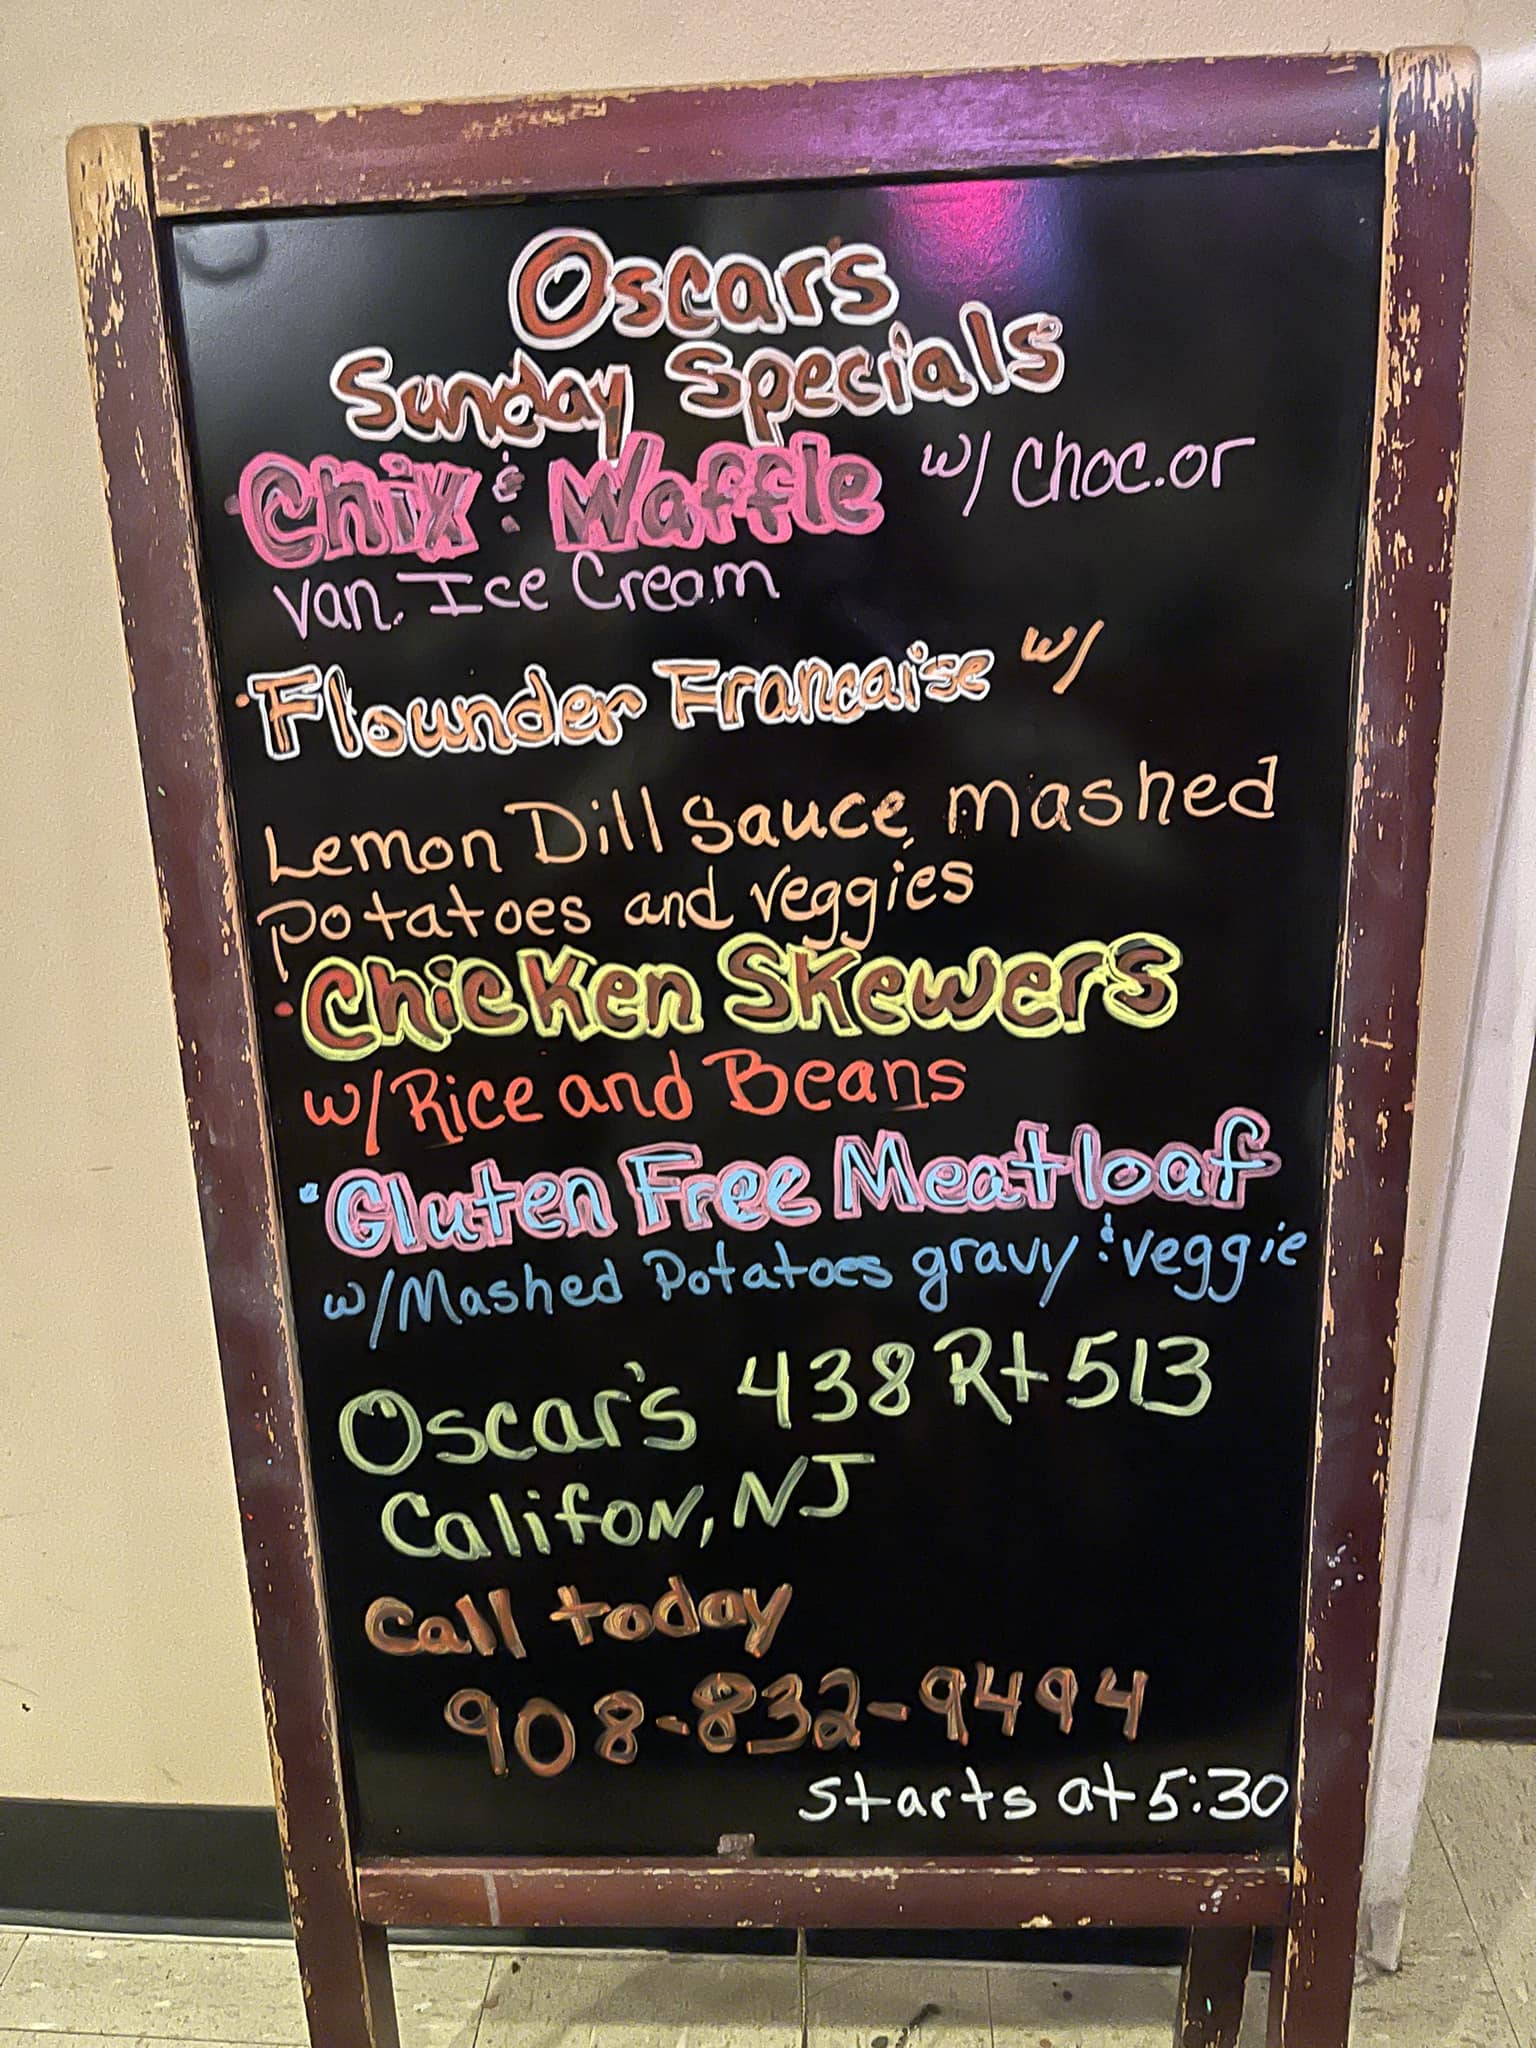 Oscar's
Sunday Specials
• Chix & Waffle w/ Choc. or
Van. Ice Cream
• Flounder Francaise w/
Lemon Dill Sauce, mashed
potatoes and veggies
• Chicken Skewers
w/ Rice and Beans
• Gluten Free Meatloaf
w/ Mashed Potatoes gravy & veggie
Oscar's 438 Rt 513
Califon, NJ
Call today
908-832-9494
starts at 5:30